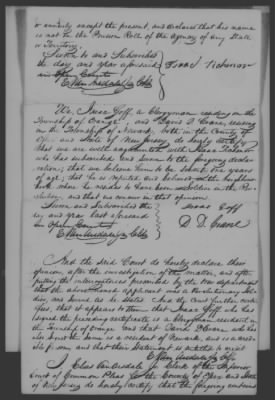 or annuity except the present, and declares that his name
is not on the Pension Roll of the Agency of any State
or Territory.
Sworn to and Subscribed
the day and year aforesaid Isaac Nichols
in open Court
E Van Arsdale Jr Clk
We, Isaac Goff, a Clergyman residing in the
Township of Orange, and David D. Crane, residing
in the Township of Newark, both in the County of
Essex and State of New Jersey do hereby certify
that we are well acquainted with Isaac
who has subscribed and sworn to the foregoing decla-
ration; that we believe him to be years of
age; that he is reputed and believed in the neighbour-
hood where he resides to have been a soldier in the Re-
volution, and that we concur in that opinion.
Sworn and Subscribed the Isaac Goff
day and year last aforesaid
in Open Court D. D. Crane
E Van Arsdale Jr Clk
And the said Court do hereby declare their
opinion, after the investigation of the matter, and after
putting the interrogatories prescribed by the War department
that the above named applicant was a Revolutionary sol-
dier, and served as he states. And the Court further certi-
fies, that it appears to them that Isaac Goff who has
signed the preceding certificate is a Clergyman resident in
the Township of Orange and that David D. Crane, who has
also signed the same is a resident of Newark, and is a cred-
ible person, and that their statement is entitled to credit
E Van Arsdale Jr
I, Elias Van Arsdale Jr Clerk of the Inferior
Court of Common Pleas for the County of Essex and State
of New Jersey do hereby certify, that the foregoing contains